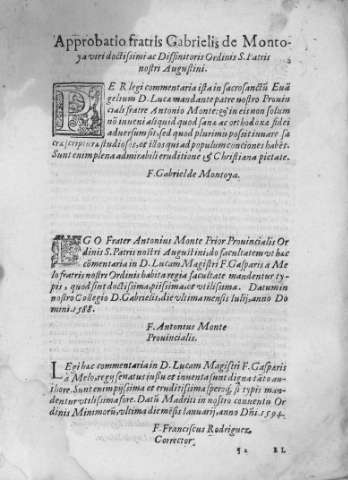 Approbatio fratris Gabrielis de Monto-
ya viri doctissimi ac Diffinitoris Ordinis S. Patris
nostri Augustini.
PErlegi commentaria ista in sacrosanctũ Euã
gelium D. Lucæ mandante patre nostro Prouin
ciali fratre Antonio Monte: & in eis non solum
nõ inueni aliquid quod sanæ ac orthodoxæ fidei
aduersum sit, sed quod plurimũ possit iuuare sa
cræ scripturæ studiosos, et ictos qui ad populum conciones habẽt.
Sunt enim plena admirabili eruditione & Christiana pietate.
F. Gabriel de Montoya.
EGO Frater Antonius Monte Prior Prouincialis Or
dinis S. Patris nostri Augustini, do facultatem vt hæc
cõmentaria in D. Lucam Magistri F. Gasparis à Me
lo fratris nostri Ordinis habita regia facultate mandentur ty-
pis, quod sint doctissima, piissima, et vtilissima. Datum in
nostro Collegio D. Gabrielis, die vltima mensis Iulij, anno Do
mini. 1588.
F. Antonius Monte
Prouincialis.
LEgi hæc commentaria in D. Lucam Magistri F. Gasparis
à Melo, regij senatus iussu et inuenta sunt digna tãto au-
thore. Sunt enim pijssima et eruditissima, speroq́; si typis man-
dentur vtilissima fore. Datũ Madriti in nostro conuentu Or
dinis Minorum, vltima die mẽsis Ianuarij, anno Dñi. 1594.
F. Franciscus Rodriguez
Corrector.
¶2 EL